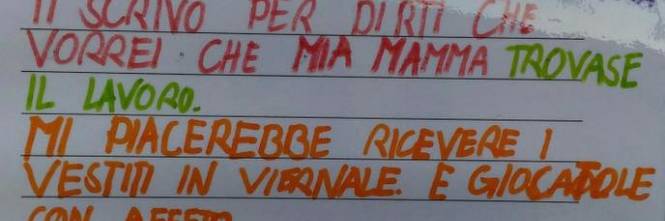 TI SCRIVO PER DIRTI CHE
VORREI CHE MIA MAMMA TROVASE
IL LAVORO.
MI PIACEREBBE RICEVERE I
VESTITI IN VIERNALE. E GIOCATOLE
CON AFFETO